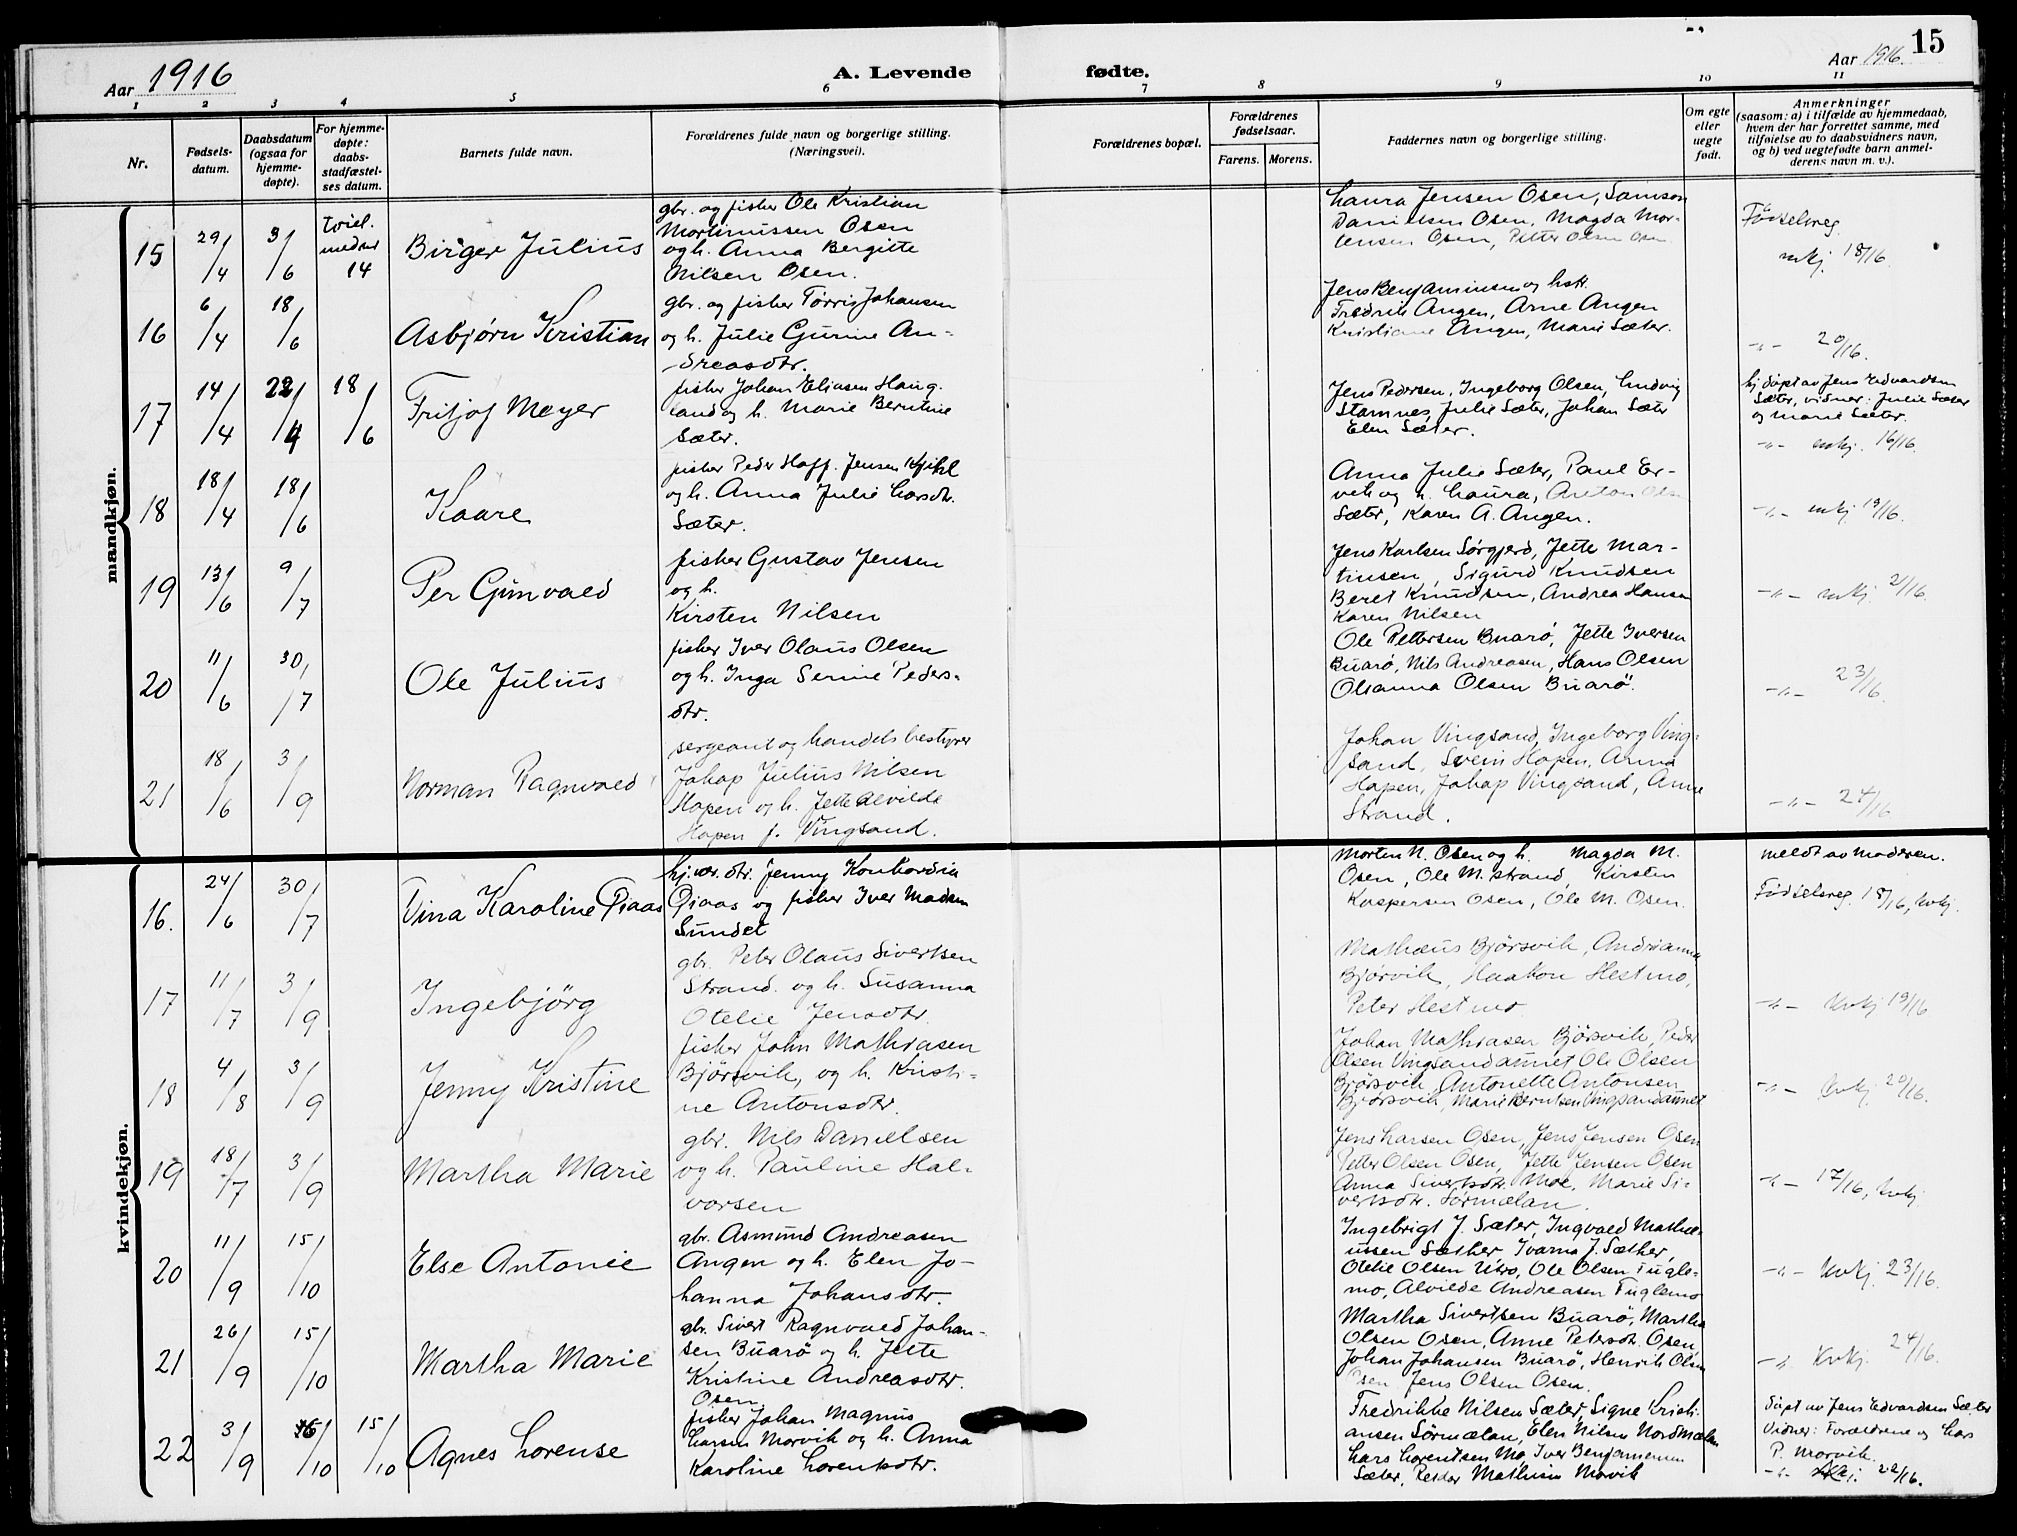 15
Aar 1916
A. Levende fødte.
Aar 1916.
1 2 3 4 5 6 7 8 9 10 11
Nr.
Fødsels-
datum.
Daabsdatum
(ogsaa for
hjemme-
døpte).
For hjemme-
døpte:
daabs-
stadfæstel-
ses datum.
Barnets fulde navn.
Forældrenes fulde navn og borgerlige stilling.
(Næringsvei).
Forældrenes bopæl.
Forældrenes
fødselsaar.
Farens. Morens.
Faddernes navn og borgerlige stilling.
Om egte
eller
uegte
født.
Anmerkninger
(saasom: a) i tilfælde av hjemmedaab,
hvem der har forrettet samme, med
tilføielse av to daabsvidners navn,
og b) ved uegtefødte barn anmel-
derens navn m. v.).
mandkjøn.
15 29/4 3/6
14
Birger Julius
gbr. og fisker Ole Kristian
Mortinussen Osen
og h. Anna Bergitte
Nilsen Osen.
Laura Jensen Osen, Samson
Danielsen Osen, Magda Mor-
tensen Osen, Petter Olsen Osen
Fødselsreg.
mkj. 18/16.
16 6/4 18/6
Asbjørn Kristian
gbr. og fisker Tørris Johansen
og h. Julie Gurine An-
dreasdtr.
Jens Benjaminsen og hstr.
Fredrik Angen, Arne Angen
Kristiane Angen, Marie Sæter.
-"- 20/16.
17 14/4 22/4 18/6
Fritjof Meyer
fisker Johan Eliasen Haug-
land og h. Marie Berntine
Sæter.
Jens Pedersen, Ingeborg Olsen, Ludvig
Stamnes, Julie Sæter, Johan Sæter
Elen Sæter.
hj.døpt av Jens Edvardsen
Sæter, vidner: Julie Sæter
og Marie Sæter.
-"- mkj. 16/16.
18 18/4 18/6
Kaare
fisker Peder Hoff Jensen Kjihl
og h. Anna Julie Larsdtr.
Sæter.
Anna Julie Sæter, Paul Er-
vik og h. Laura, Anton Olsen
Sæter, Karen A. Angen.
-"- mkj 19/16.
19 13/6 9/7
Per Gunvald
fisker Gustav Jensen
og h.
Kirsten Nilsen
Jens Karlsen Sørgjerd, Jette Mar-
tinsen, Sigurd Knudsen
Beret Knudsen, Andrea Hansen
Karen Nilsen
-"- mkj. 21/16.
20 11/6 30/7
Ole Julius
fisker Iver Olaus Olsen
og h. Inga Serine Peders-
dtr.
Ole Pettersen Buarø, Jette Iversen
Buarø, Nils Andreasen, Hans Olsen
Olsanna Olsen Buarö.
-"- 23/16.
21 18/6 3/9
Norman Ragnvald
sergeant og handelsbestyrer
Jakop Julius Nilsen
Hopen og h. Jette Alvilde
Hopen f. Vingsand.
Johan Vingsand, Ingeborg Ving-
sand, Svein Hopen, Anna
Hopen, Jakop Vingsand, Anne
Strand.
-"- 24/16
kvindekjøn.
16. 24/6 30/7
Tina Karoline Qiaas
Jenny Konkordia
Qiaas og fisker Iver Madsen
Sundet
Morten N. Osen og h. Magda M.
Osen, Ole M. Strand, Kirsten
Kaspersen Osen, Ole M. Osen.
meldt av moderen.
Fødselsreg. 18/16, kvkj.
17 11/7 3/9
Ingebjörg
gbr. Peter Olaus Sivertsen
Strand. og h. Susanna
Otelie Jensdtr.
Mathæus Bjørsvik, Andrianna
Bjørvik, Haakon Hestmo,
Peter Hestmo
-"- kvkj 19/16
18 4/8 3/9
Jenny Kristine
fisker John Mathiasen
Bjørsvik, og h. Kristi-
ne Antonsdtr.
Johan Mathiasen Bjørsvik, Peder
Olsen Vingsandaunet Ole Olsen
Bjørsvik, Antonette Antonsen
Bjørsvik, Marie Berntsen Vingsandaunet
-"- kvkj. 20/16.
19 18/7 3/9
Martha Marie
gbr. Nils Danielsen
og h. Pauline Hal-
vorsen
Jens Larsen Osen, Jens Jensen Osen
Petter Olsen Osen, Jette Jensen Osen
Anna Sivertsdtr. Moe, Marie Si-
vertsdtr. Sørmelan.
-"- 17/16, kvkj
20 11/9 15/10
Else Antonie
gbr. Asmund Andreasen
Angen og h. Elen Jo-
hanna Johansdtr.
Ingebrigt J. Sæter, Ingvald Mathæ-
ussen Sæther, Ivarna J. Sæther,
Otelie Olsen Utro, Ole Olsen Fugle-
mo, Alvilde Andreasen Fuglemo
-"- kvkj. 23/16.
21 26/9 15/10
Martha Marie
gbr. Sivert Ragnvald Johan-
sen Buarø og h. Jette
Kristine Andreasdtr.
Osen.
Martha Sivertsen Buarö, Martha
Olsen Osen, Anne Petersdtr. Osen,
Johan Johansen Buarö, Henrik Olsen
Osen, Jens Olsen Osen.
-"- kvkj. 24/16.
22 3/9 /10 15/10
Agnes Lorense
fisker Johan Magnus
Larsen Morvik og h. Anna
Karoline Lorentsdtr.
Fredrikke Nilsen Sæter, Signe Kristi-
ansen Sørmælan, Elen Nilsen Nordmælan
Lars Lorentsen Mo, Iver Benjaminsen
Sæter, Peder Mathisen Morvik
Døpt av Jens Edvardsen Sæter
Vidner: Forældrene og Lars
P. Morvik.
-"- kvkj. 22/16.